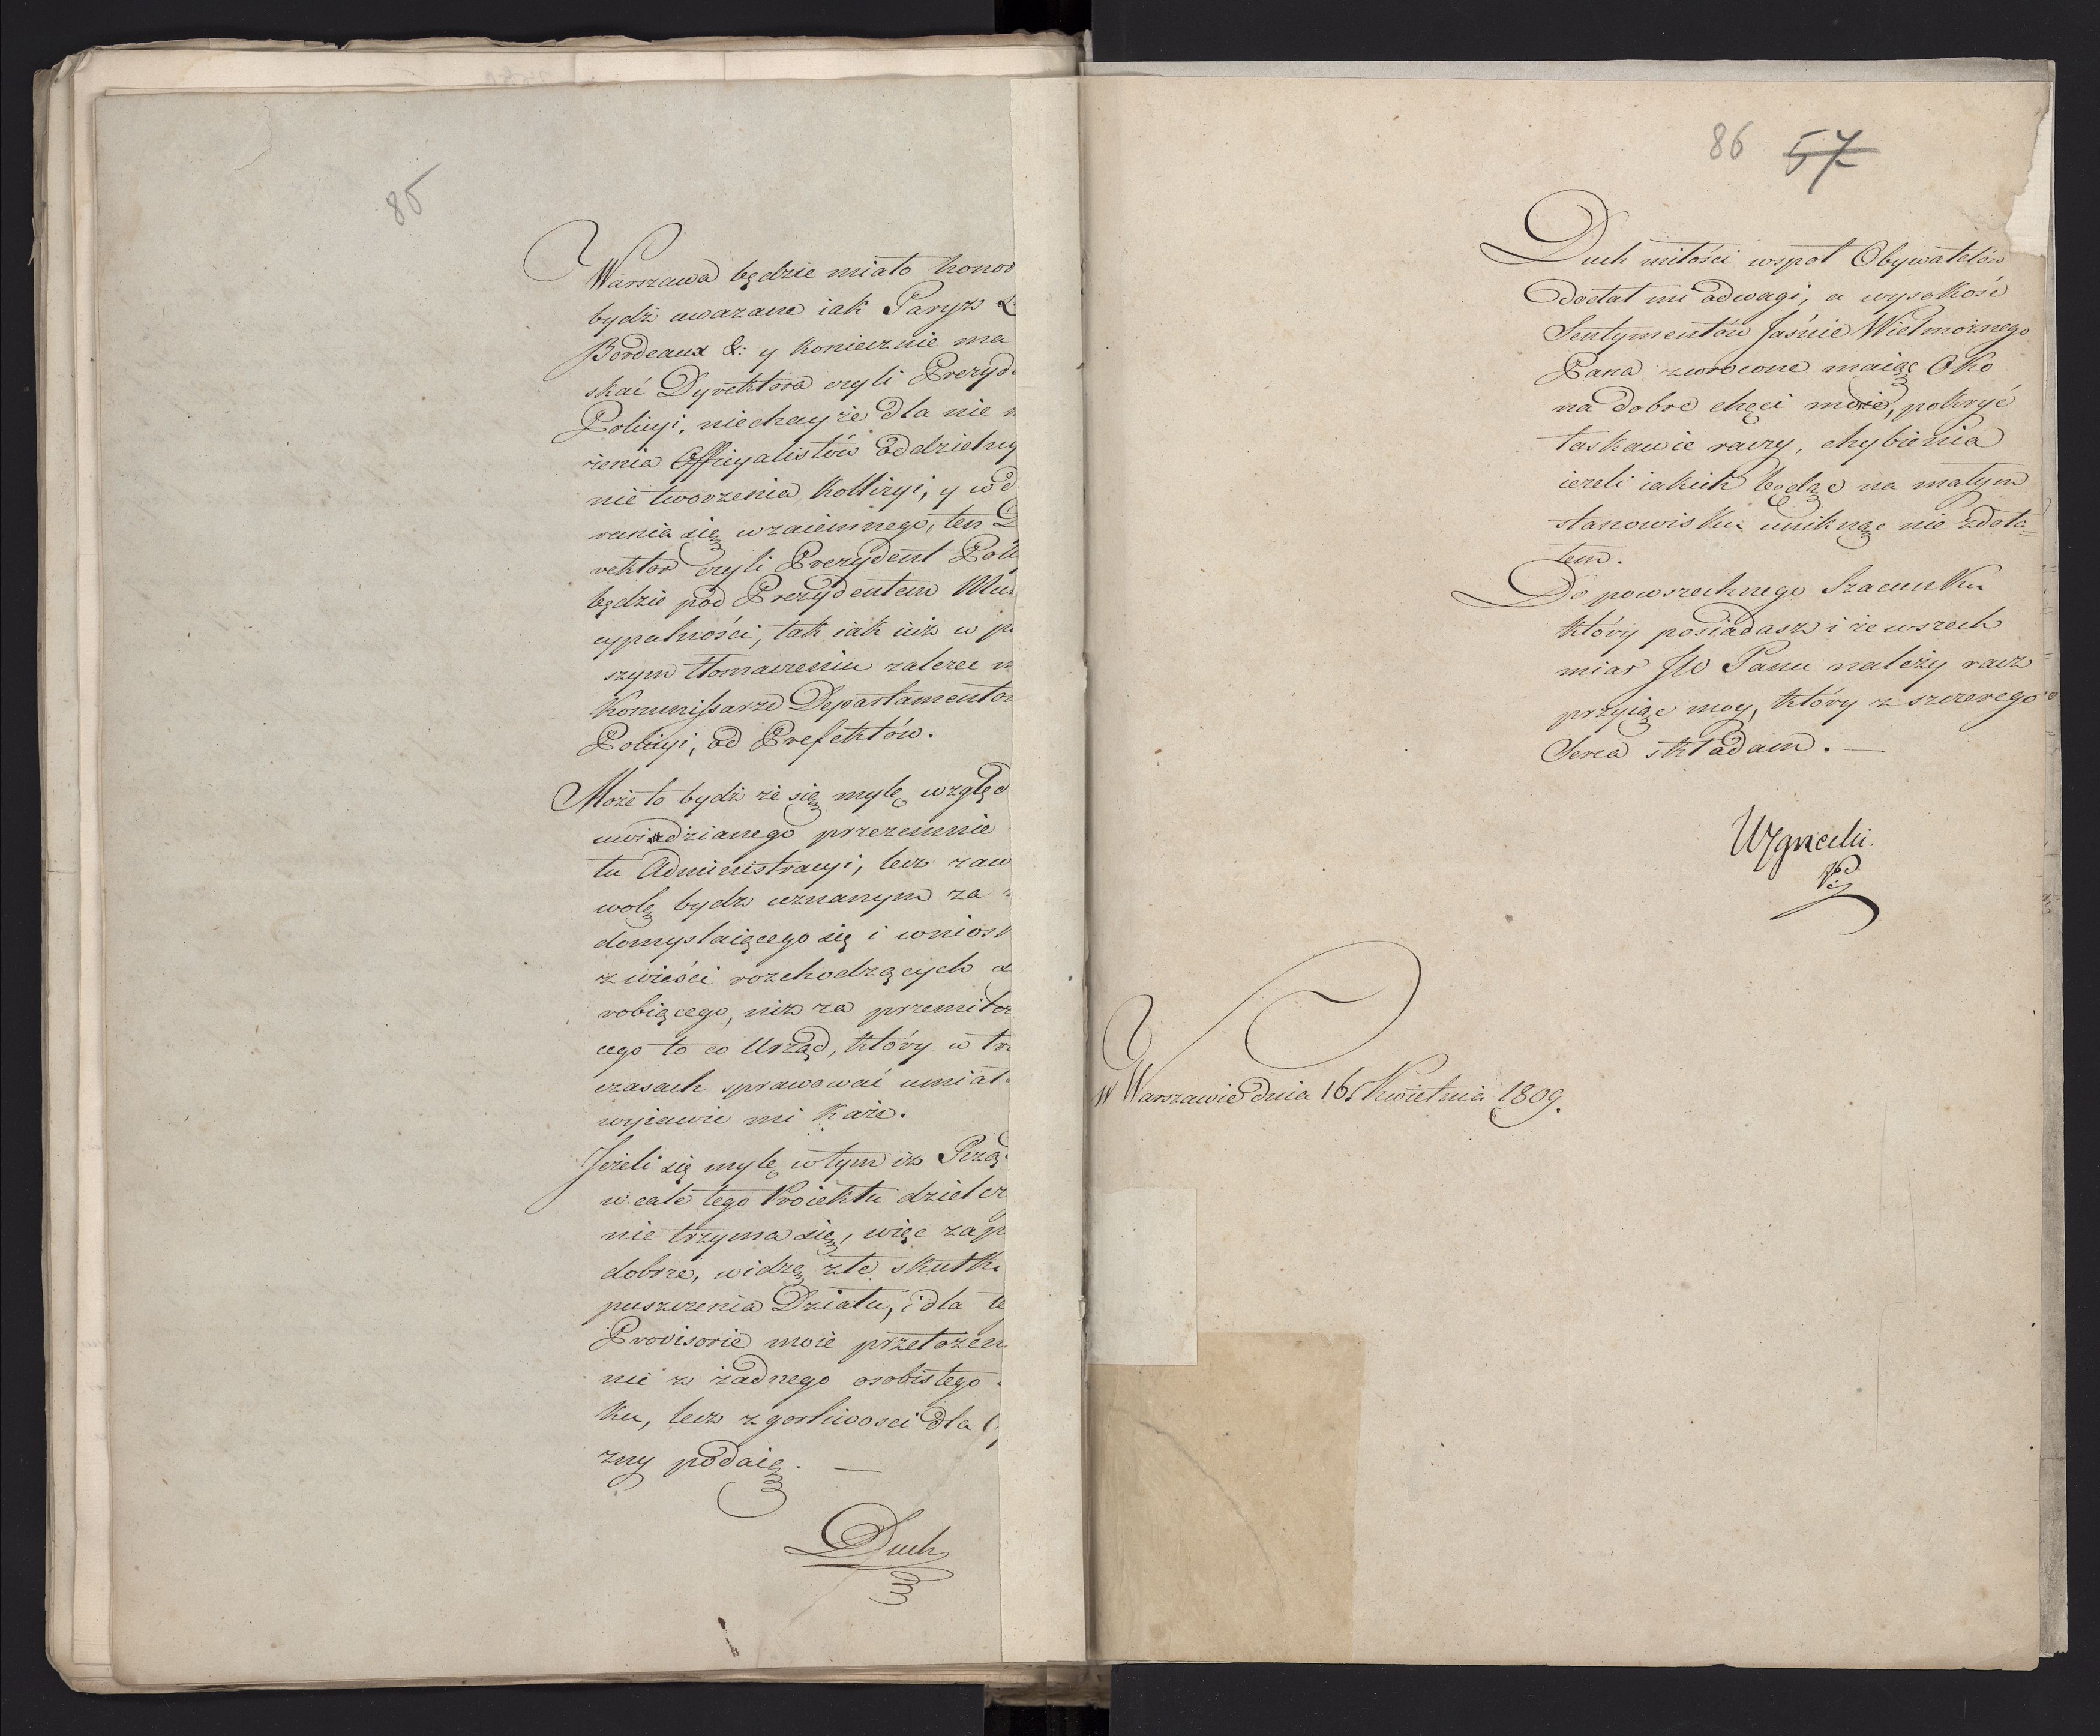 85
Warszawa będzie miało honor
bydź uważane iak Paryż
Bordeaux &: y koniecznie ma
skać Dyrektora czyli Prezyd
Policyi, niechayże dla nie
żenia Officyalistów oddzielny
nie tworzenia Kollizyi, y
rania się wzaiemnego, ten D
rektor czyli Prezydent Poli
będzie pod Prezydentem Mu
cypalności, tak iak iuż w
szym tłomaczeniu zależeć
Kommissarze Departamento
Policyi, od Prefektów.
Może to bydź że się mylę względ
uwiedzianego przezemnie
tu Administracyi, lecz zaw
wolę bydź uznanym za
domyslaiącego się i wniosk
z wieści rozchodzących
robiącego, niż za przemilcz
cego to co Urząd, który w tr
czasach sprawować umiał
wyiawić mi każe.
Jeżeli się mylę w tym iż Rzą
w cale tego Proiektu dzieł
nie trzyma się, więc zap
dobrze, widzę złe skutk
puszczenia Działu, i dla te
Provisorie moie przełożen
nie z żadnego osobistego
ku, lecz z gorliwosci dla
zny podaię.
Duch
86 57
Duch miłości wspoł Obywatelów
dodał mi odwagi, a wysokość
Sentymentów Jaśnie Wielmożnego
Pana zwrócone maiąc Oko
na dobre chęci moie, pokryć
łaskawie raczy, chybienia
ieżeli iakich będąc na małym
stanowisku uniknąć nie zdoła=
łem.
Do powszechnego Szacunku
który posiadasz i ze wszech
miar JW Panu należy racz
przyiąć moy, który z szczerego
Serca składam. —
w Warszawie dnia 16. Kwietnia 1809.